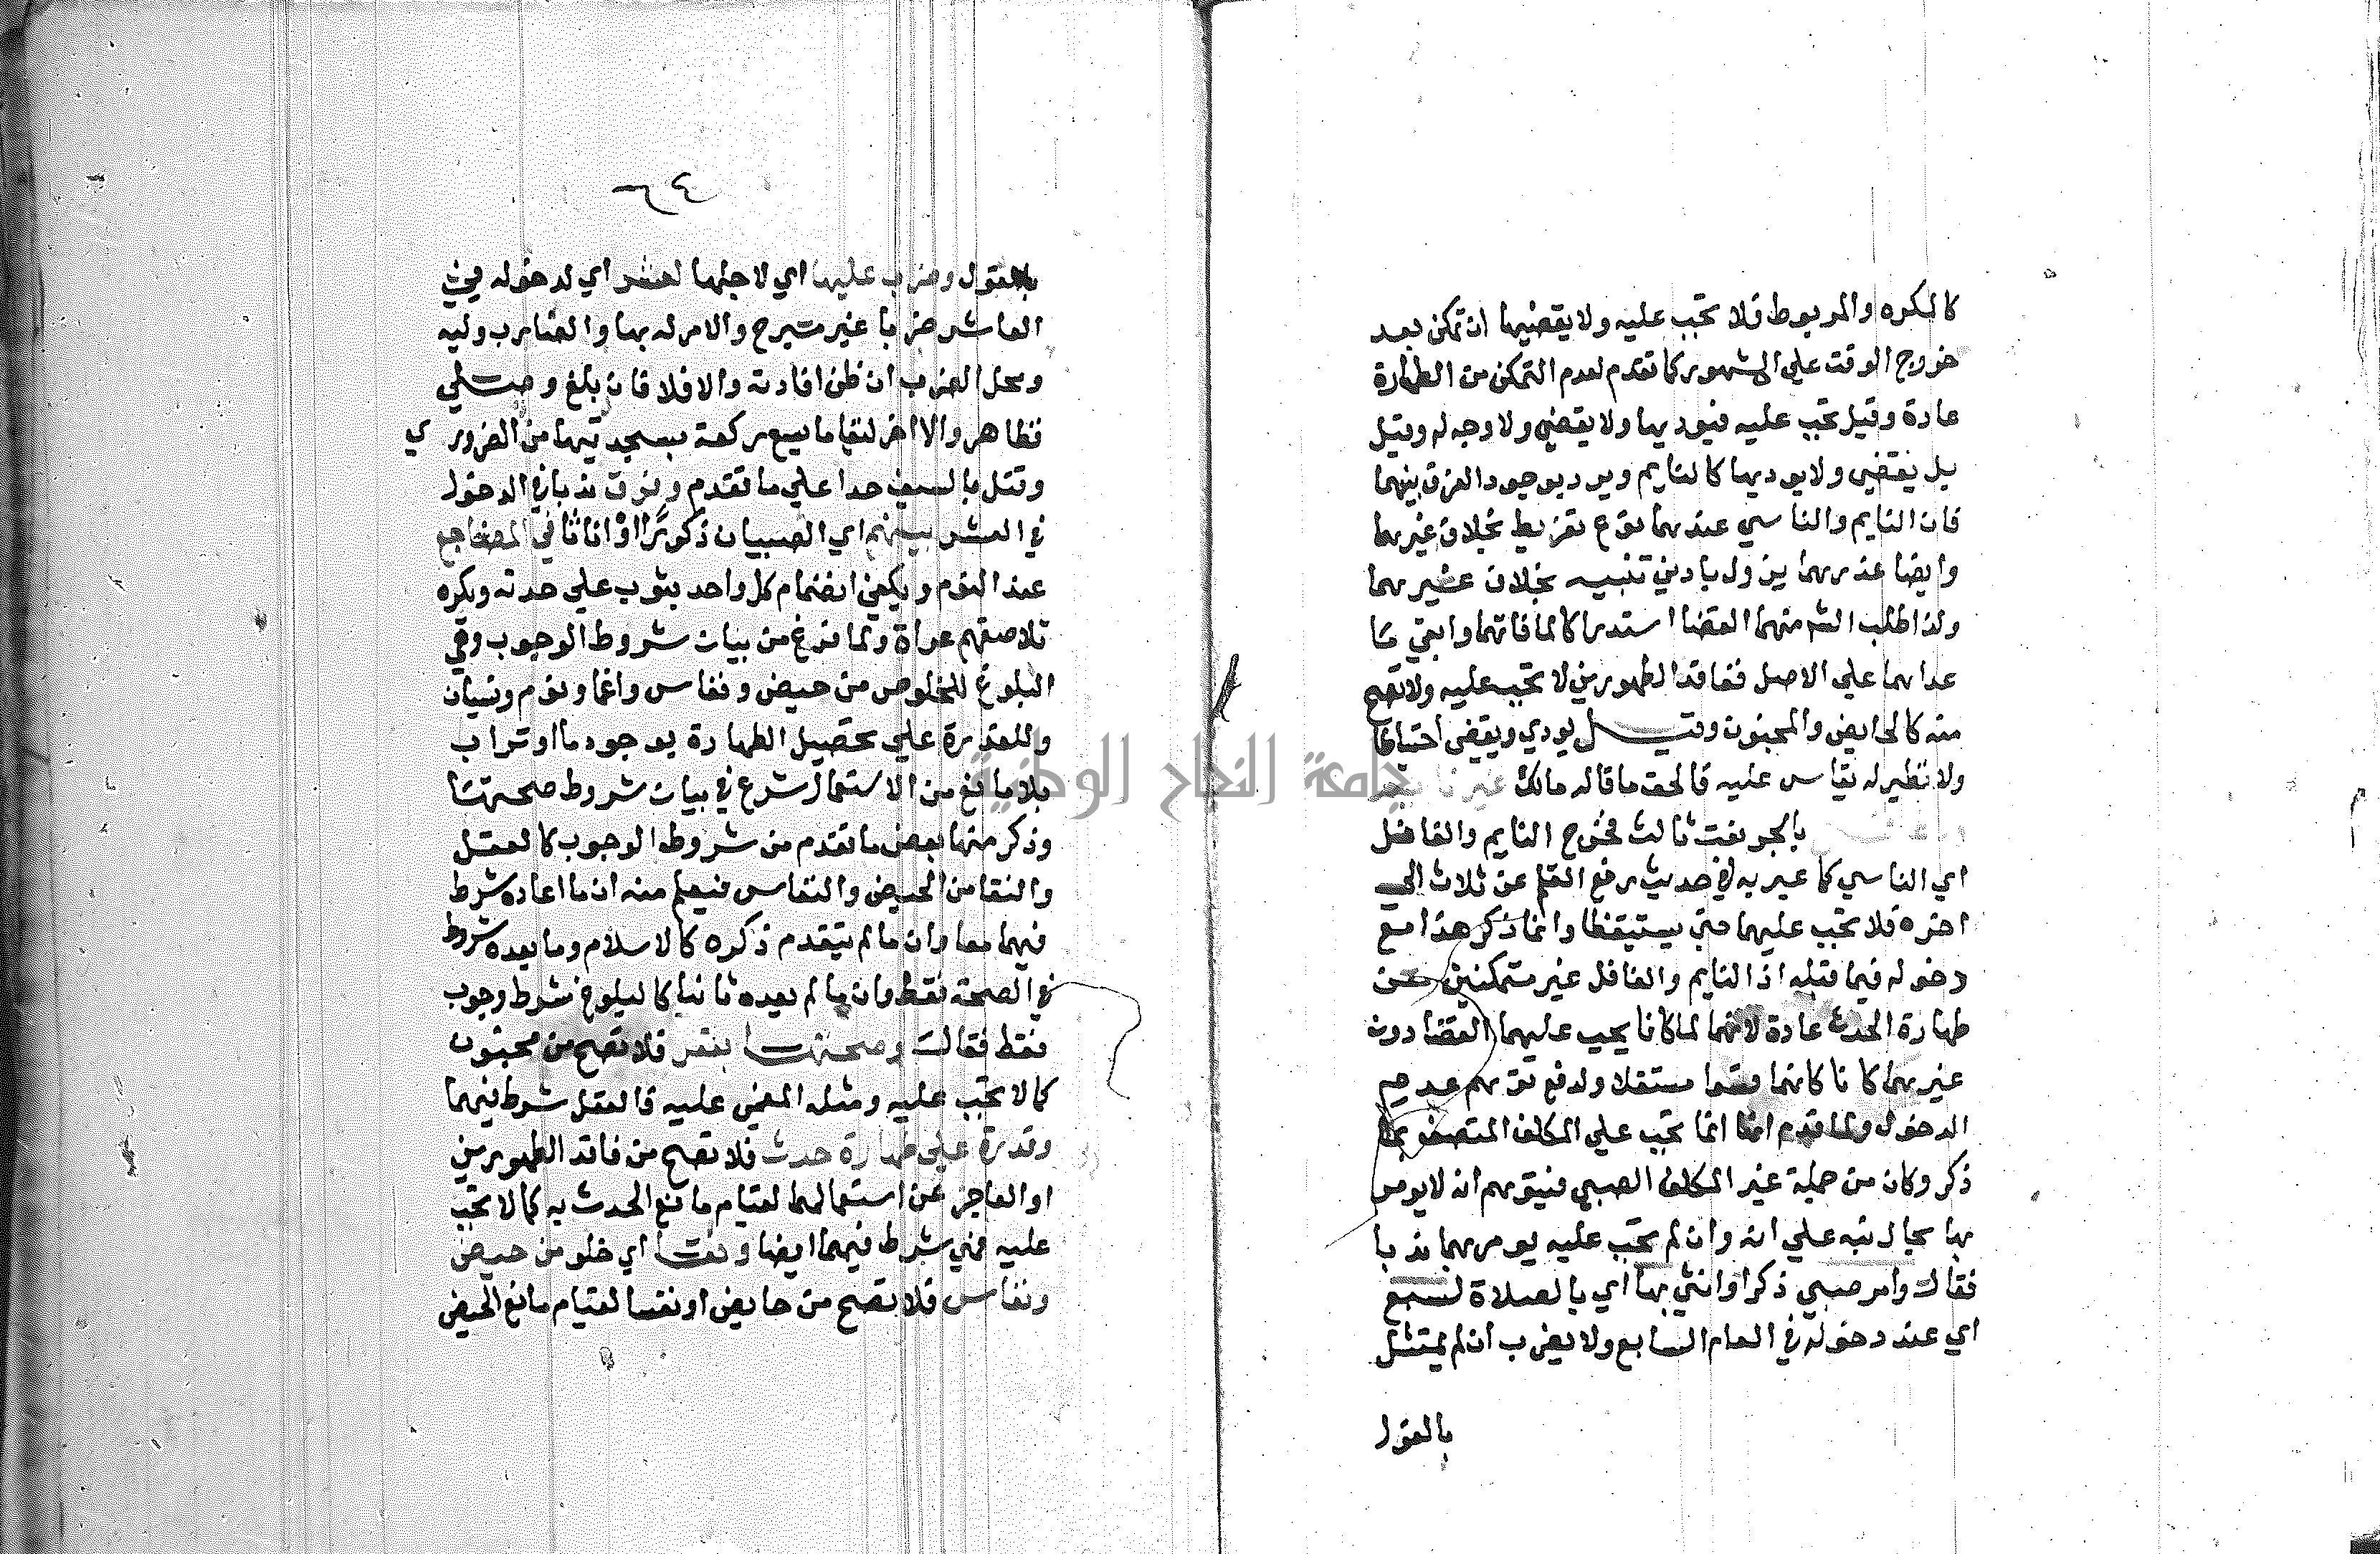 كالمكره والمربوط فلا تجب عليه ولا يقضيها ان تمكن بعد
خروج الوقت علي المشهور كما تقدم لعدم التمكن من الطهارة
عادة وقيل تجب عليه فيوديها ولا يقضي ولا وجه له وقيل
بل يقضي ولا يوديها كالنايم ويرد بوجود الفرق بينهما
فان النايم والناسي عندهما نوع تفريط بخلاف غيرهما
وايضا عذرهما يزول بادني تنبيه بخلاف غيرهما
ولذا طلب منهما القضا استدراكا لما فاتهما وابقي ما
عداهما علي الاصل ففاقد الطهورين لا تجب عليه ولا تصح
منه كالحايض والمجنون وقيل يودي ويقضي احتياطا
ولا نظير له يقاس عليه فالحق ما قاله مالك
ثالث فخرج النايم والغافل
اي الناسي كما عبر به في حديث رفع القلم عن ثلاث الي
اخره فلا تجب عليهما حتي يستيقظا وانما ذكر هذا مع
دخوله فيما قبله اذ النايم والغافل غير متمكنين من
طهارة الحدث عادة لانهما لما كانا يجب عليهما القضا دون
غيرهما كانا كانهما مستقلا ولدفع توهم عدم
الدخول ولما قدم انها انما تجب علي المكلف المتصف بما
ذكر وكان من جملة غير المكلف الصبي فيتوهم انه لا يومر
بها بحال نبه علي انه وان لم تجب عليه يومر بها ندبا
فقال وامر صبي ذكرا وانثي بها اي بالصلاة لسبع
اي عند دخوله في العام السابع ولا يضرب ان لم يمتثل
بالقول
بالقول وضرب عليها اي لاجلها لعشر اي لدخوله في
العاشر ضربا غير مبرح والامر له بها والضارب وليه
ومحل الضرب ان ظن افادته والا فلا فان بلغ وصلي
فظاهر والا اخر لبقا ما يسع ركعة بسجدتيها من الضروري
وقتل بالسيف حدا علي ما تقدم وفرق ندبا في الدخول
في العشر بينهم اي الصبيان ذكورا او اناثا في المضاجع
عند النوم ويكفي انضمام كل واحد بثوب علي حدته وكره
تلاصقهم عراة ولما فرغ من بيان شروط الوجوب وهي
البلوغ والخلوص من حيض ونفاس واغما ونوم ونسيان
والقدرة علي تحصيل الطهارة بوجود ما او تراب
بلا مانع من الاستعمال شرع في بيان شروط صحتها
وذكر منها بعض ما تقدم من شروط الوجوب كالعقل
والنقا من الحيض والنفاس فيعلم منه ان ما اعاده شرط
فيهما معا وان ما لم يتقدم ذكره كالاسلام وما بعده شروط
في الصحة فقط وان ما لم يعده ثانيا كالبلوغ شرط وجوب
فقط فقال وصحتها بعقل فلا تصح من مجنون
كما لا تجب عليه ومثله المغمي عليه فالعقل شرط فيهما
وقدرة علي طهارة حدث فلا تصح من فاقد الطهورين
او العاجز عن استعمالهما لقيام مانع الحدث به كما لا تجب
عليه فهي شرط فيهما ايضا ونقا اي خلو من حيض
ونفاس فلا تصح من حايض او نفسا لقيام مانع الحيض
جامعة النجاح الوطنية